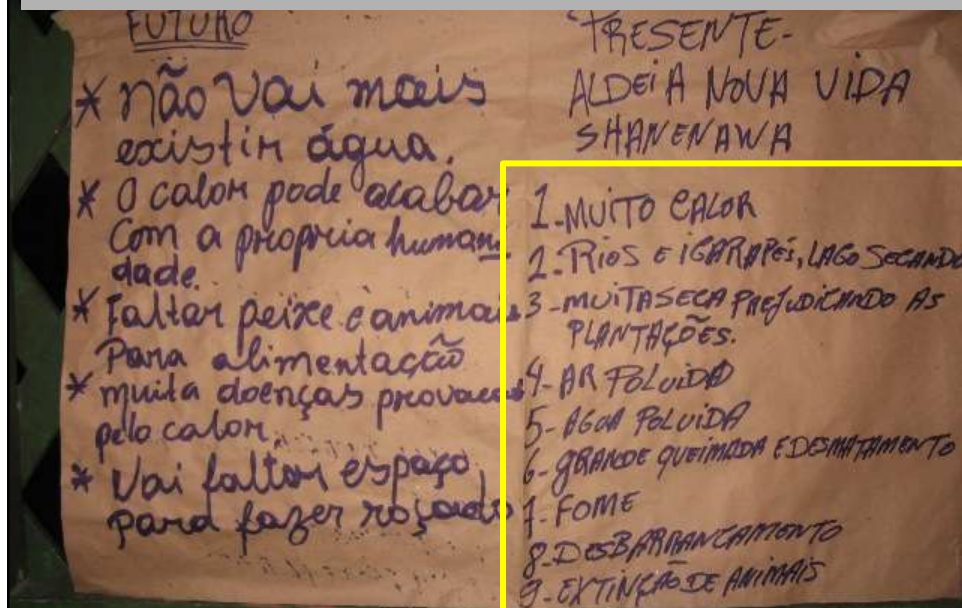 FUTURO
* não vai mais
existir água.
* O calor pode acabar
com a propria humani
dade.
* Faltar peixe e animais
Para alimentação
* muita doenças provocadas
pelo calor.
* Vai faltar espaço
para fazer roçado
PRESENTE-
ALDEIA NOVA VIDA
SHANENAWA
1-MUITO CALOR
2-RIOS E IGARAPÉS, LAGO SECANDO
3-MUITA SECA PREJUDICANDO AS
PLANTAÇÕES.
4-AR POLUIDO
5-AGUA POLUIDA
6-GRANDE QUEIMADA E DESMATAMENTO
7-FOME
8-DESBARRANCAMENTO
9-EXTINÇÃO DE ANIMAIS